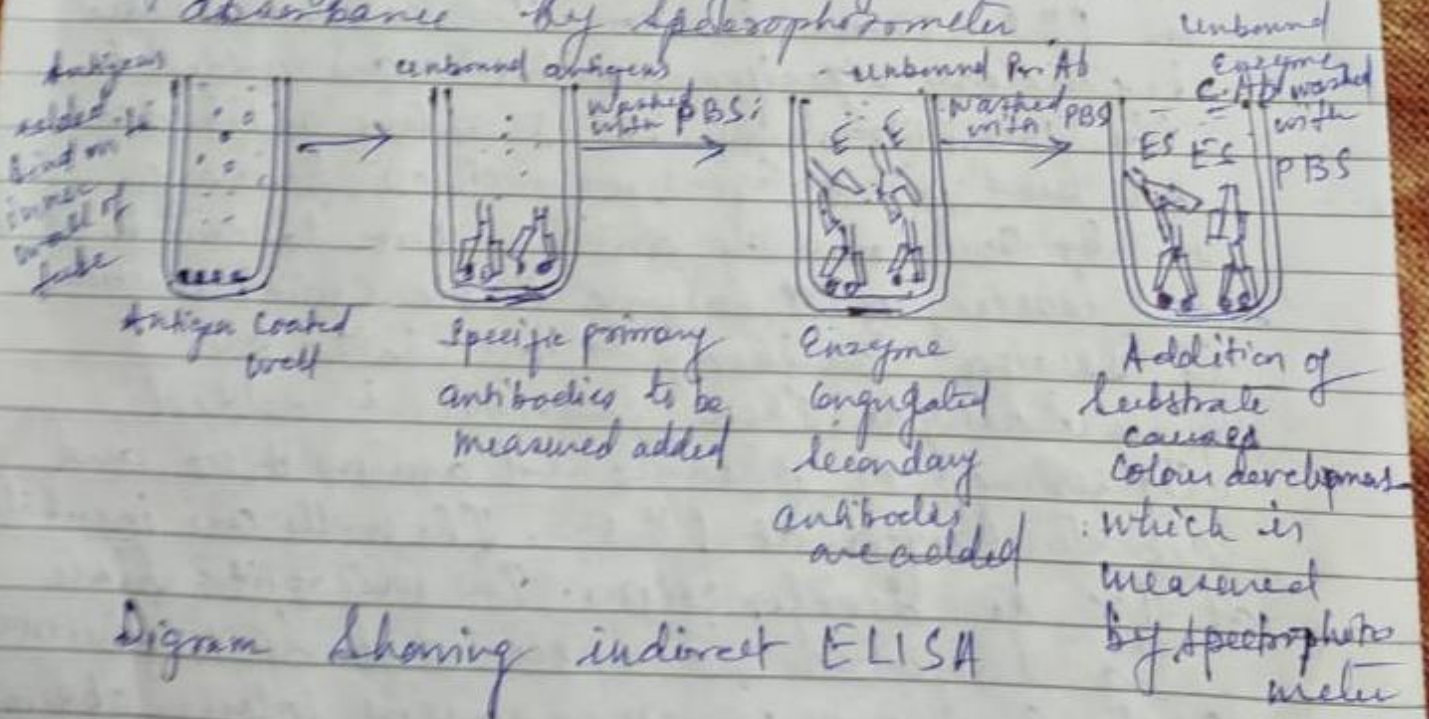 absorbance by spectrophotometer.
Antigens
added
bind on
inner
wall of
tube
unbound antigens
washed
with PBS
unbound Pr. Ab
washed
with PBS
unbound
Enzyme
C. Ab washed
with
PBS
E E
ES ES
Antigen Coated
well
Specific primary
antibodies to be
measured added
Enzyme
Congugated
secondary
antibodies
are added
Addition of
Substrate
causes
colour development
which is
measured
by spectrophoto
meter
Digram Showing indirect ELISA